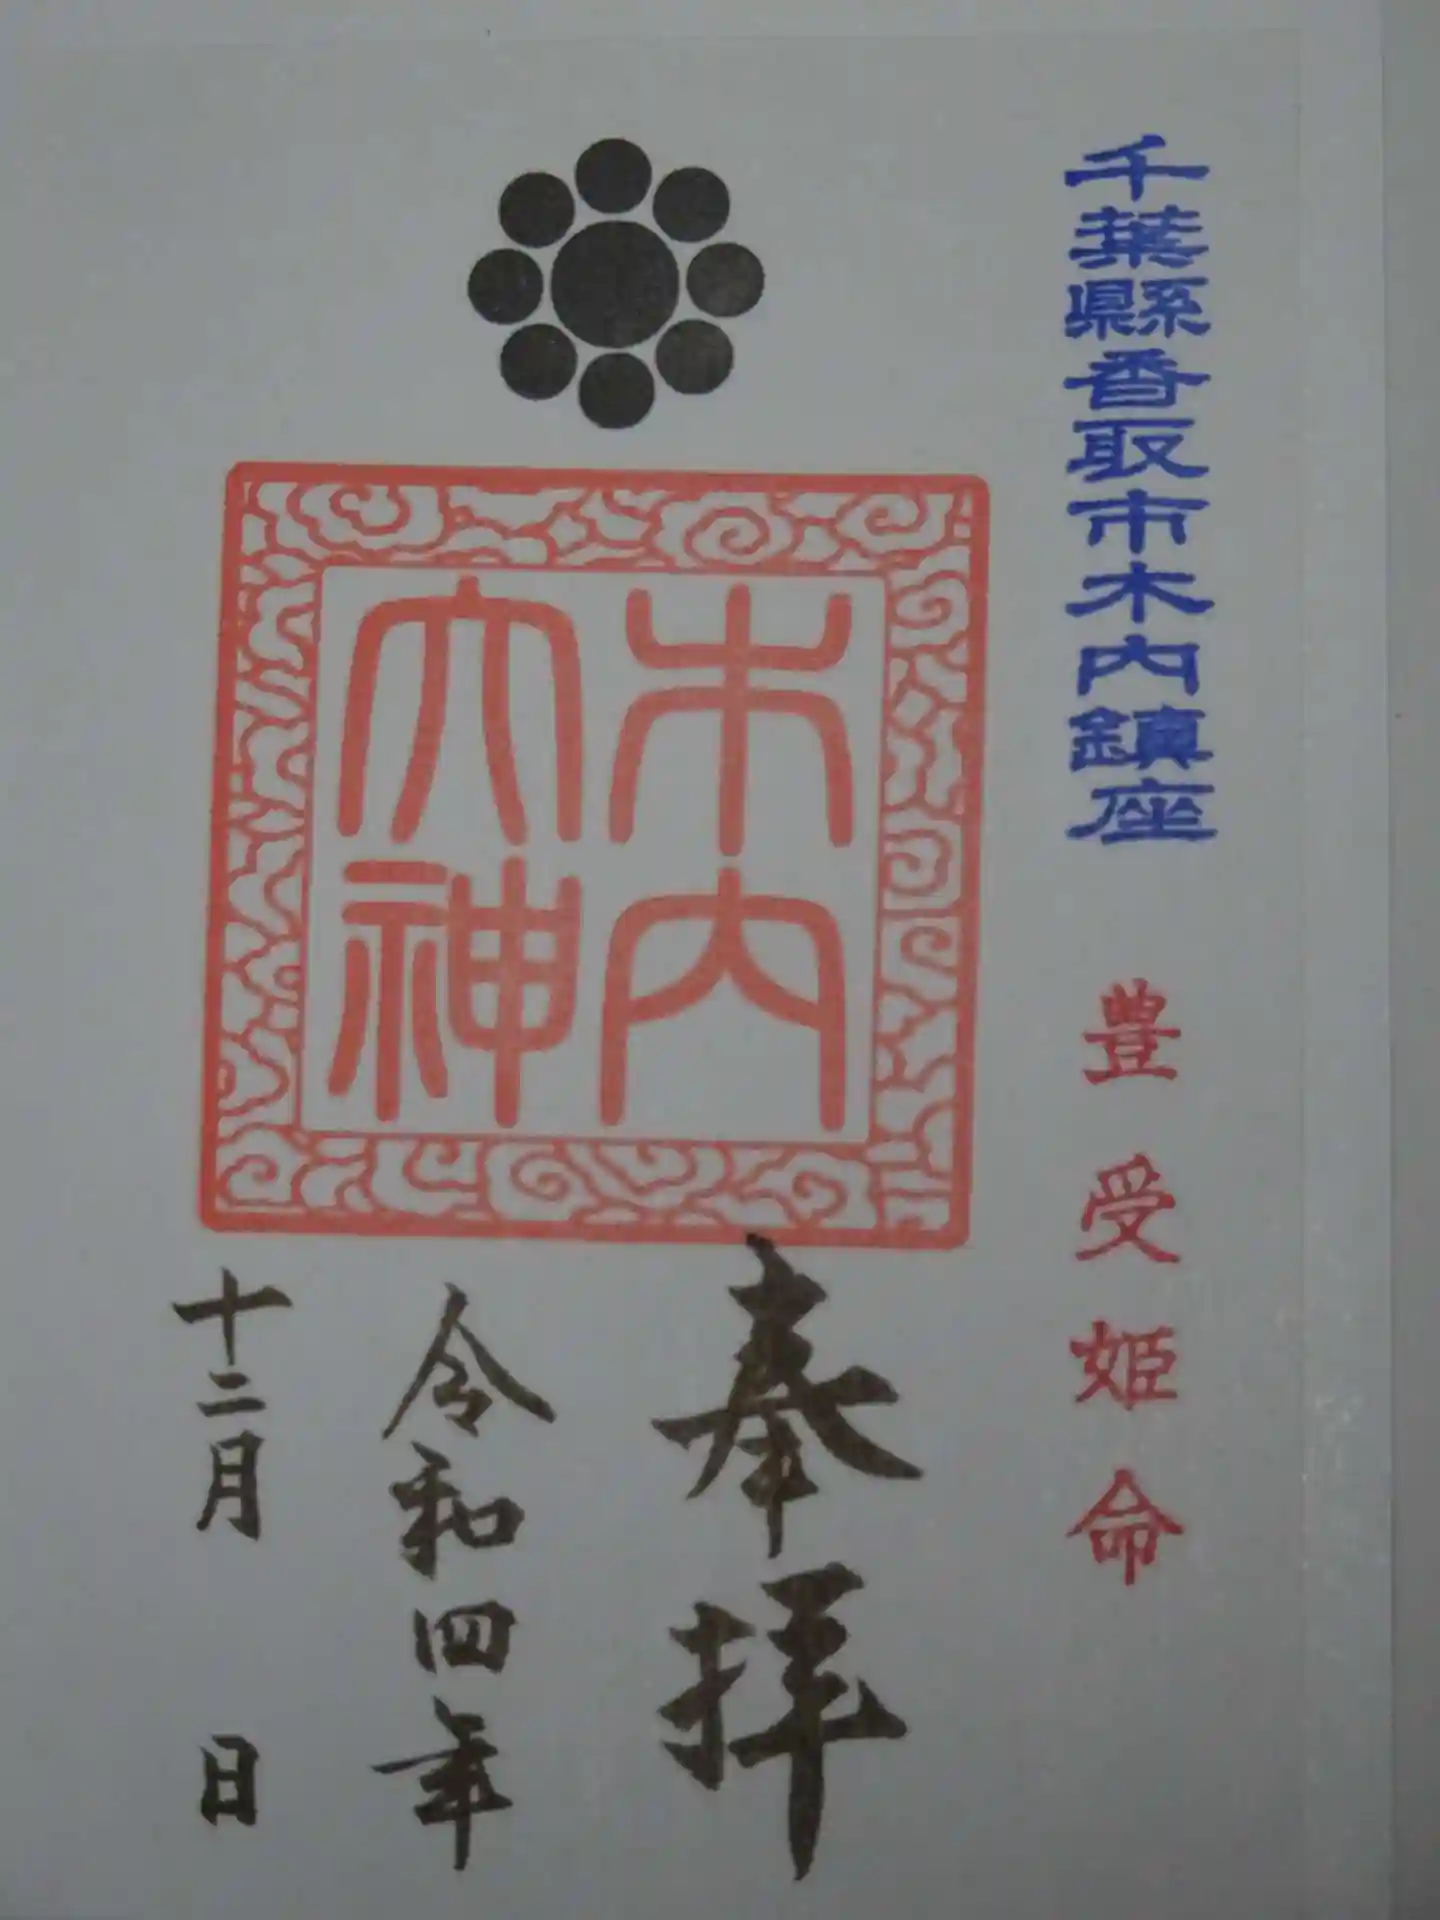 千葉縣香取市木内鎮座
豊受姫命
木内
大神
奉拝
令和四年
十二月　日